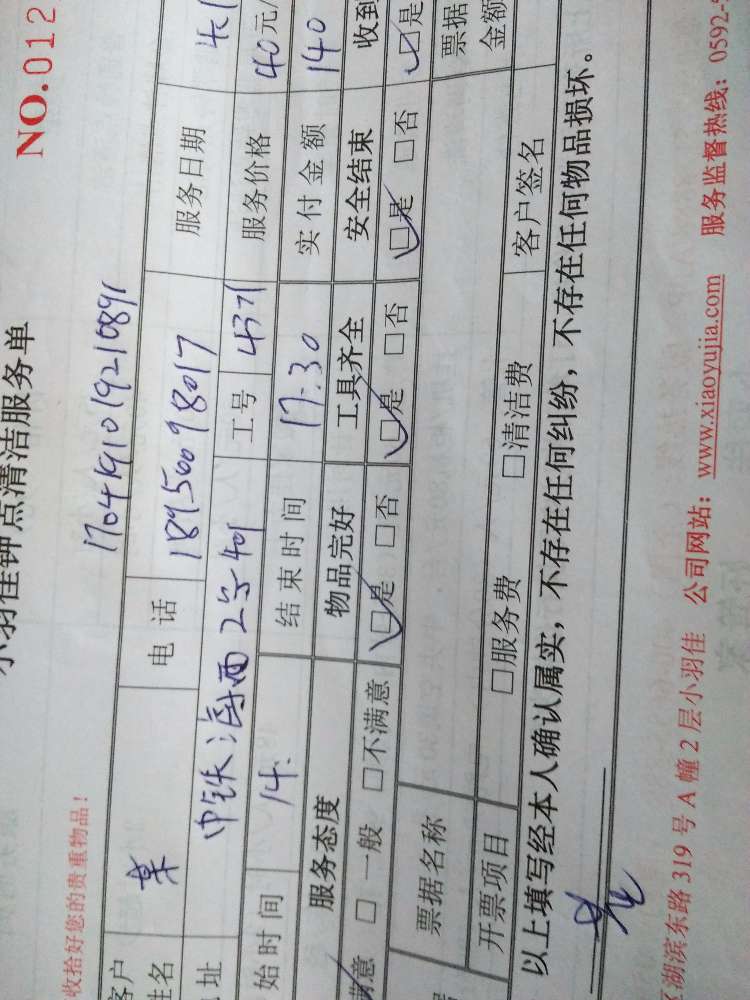 小羽佳钟点清洁服务单
NO.012
收拾好您的贵重物品!
1704191019210891
客户姓名 电话 18950098017 服务日期 4.1
地址 中铁海西2号401 工号 4371 服务价格 40元/
始时间 14. 结束时间 17:30 实付金额 140
服务态度 物品完好 工具齐全 安全结束 收到
满意 □一般 □不满意 □是 □否 □是 □否 □是 □否 □是
票据名称 票据金额
开票项目 □服务费 □清洁费 客户签名
以上填写经本人确认属实,不存在任何纠纷,不存在任何物品损坏。
区湖滨东路319号A幢2层小羽佳 公司网站:www.xiaoyujia.com 服务监督热线:0592-5